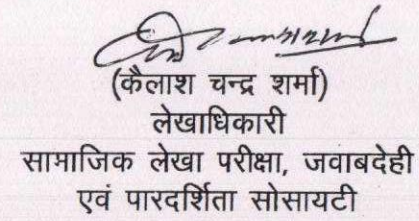 (कैलाश चन्द्र शर्मा)
लेखाधिकारी
सामाजिक लेखा परीक्षा, जवाबदेही
एवं पारदर्शिता सोसायटी